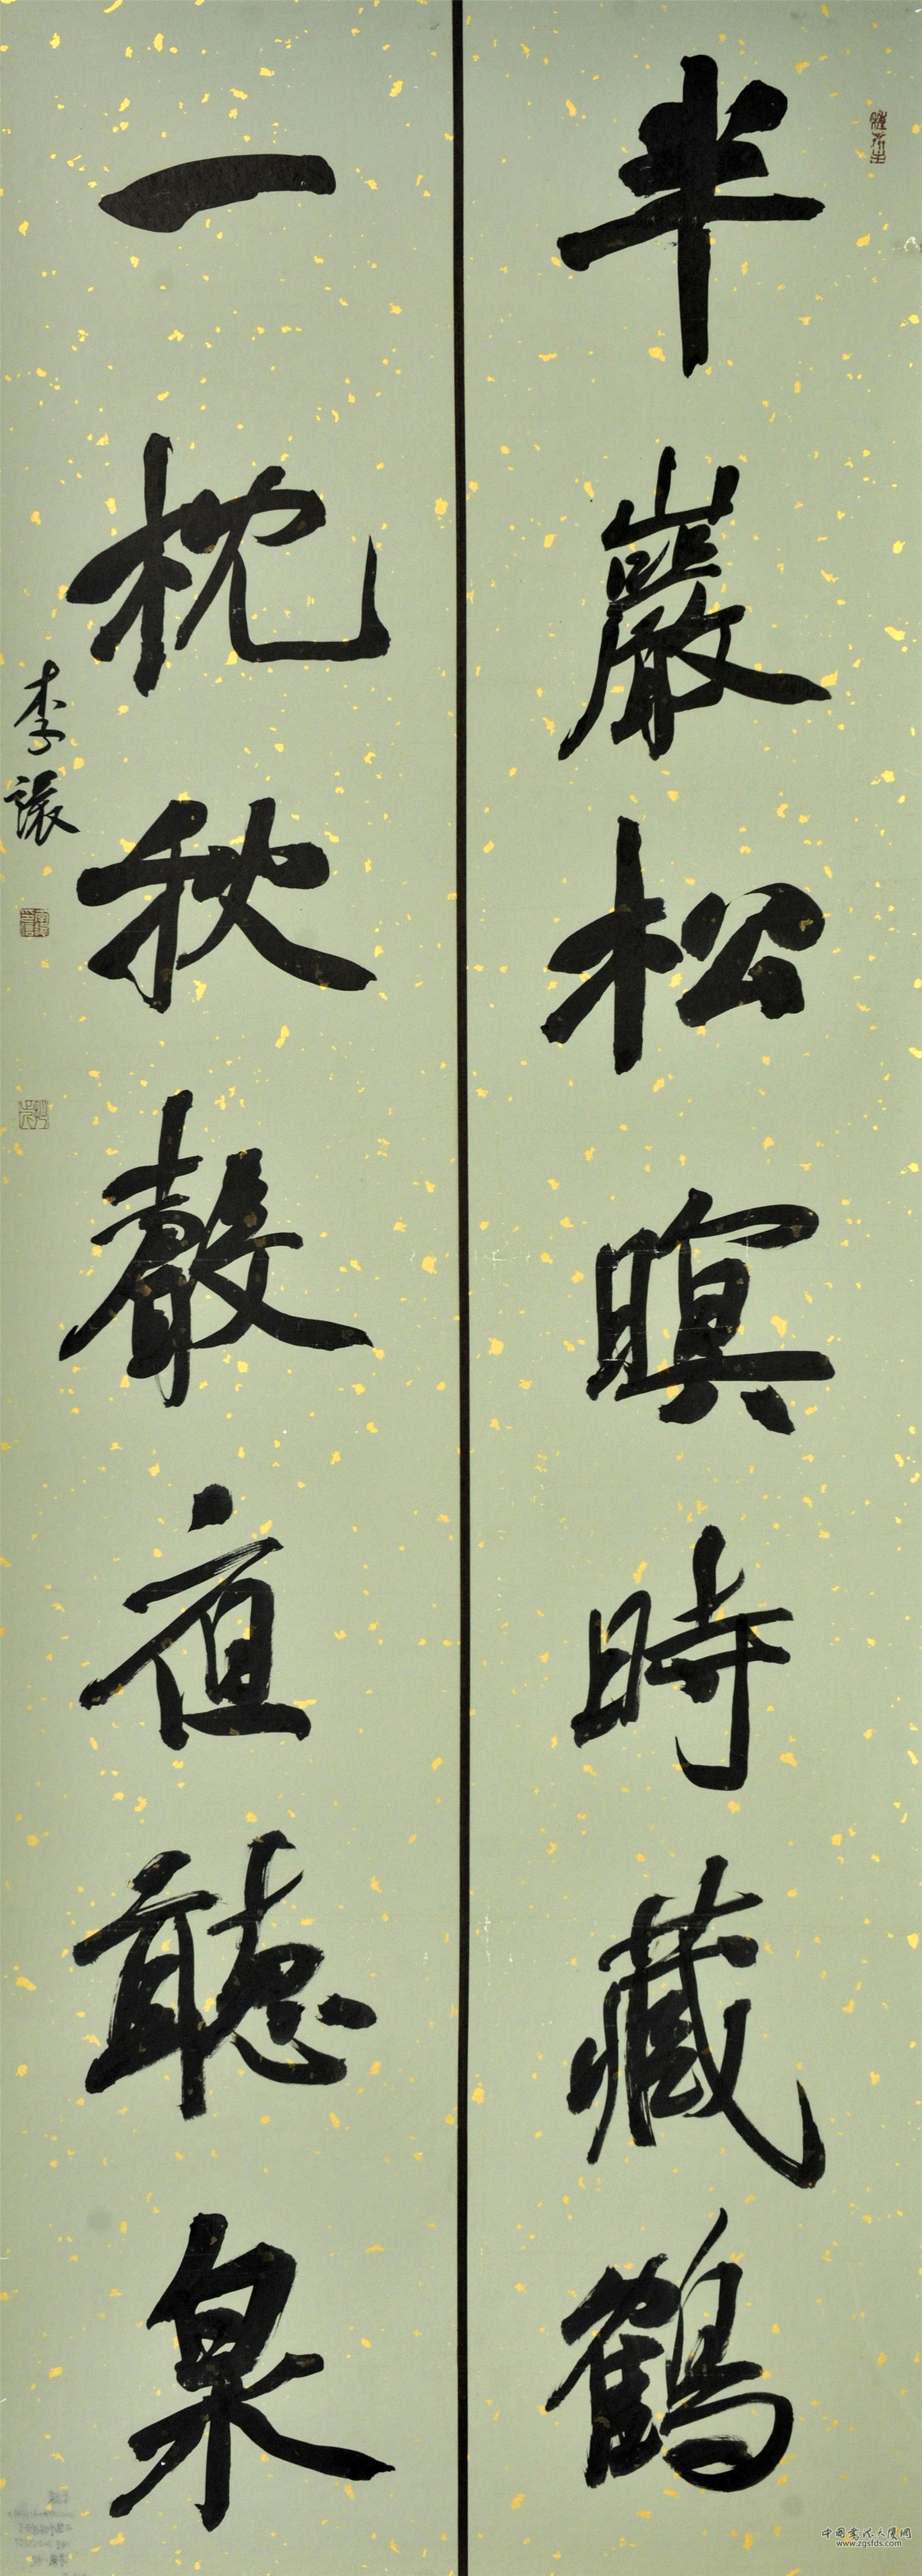 半巖松暝時藏鶴
一枕秋聲夜聽泉
李讓
中国书法大厦网
www.zgsfds.com